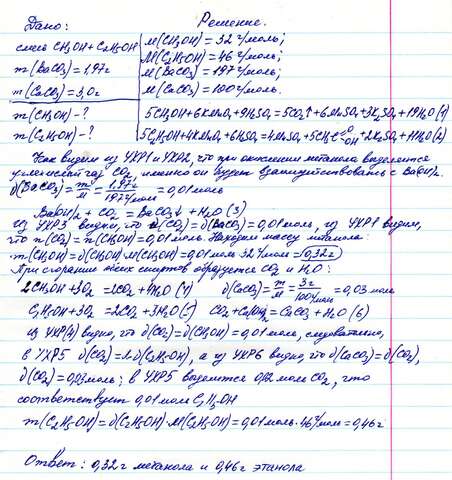 Дано: Решение.
смесь CH₃OH + C₂H₅OH M(CH₃OH) = 32 г/моль;
M(C₂H₅OH) = 46 г/моль;
m(BaCO₃) = 1,97г M(BaCO₃) = 197 г/моль;
m(CaCO₃) = 3,0г M(CaCO₃) = 100 г/моль.
m(CH₃OH) - ? 5CH₃OH + 6KMnO₄ + 9H₂SO₄ = 5CO₂↑ + 6MnSO₄ + 3K₂SO₄ + 19H₂O (1)
m(C₂H₅OH) - ? 5C₂H₅OH + 4KMnO₄ + 6H₂SO₄ = 4MnSO₄ + 5CH₃C=O-OH + 2K₂SO₄ + 11H₂O (2)
Как видим из УХР1 и УХР2, что при окислении метанола выделяется
углекислый газ CO₂, именно он будет взаимодействовать с Ba(OH)₂.
υ(BaCO₃) = m/M = 1,97г/197г/моль = 0,01 моль
Ba(OH)₂ + CO₂ = BaCO₃↓ + H₂O (3)
Из УХР3 видим, что υ(CO₂) = υ(BaCO₃) = 0,01 моль, из УХР1 видим,
что n(CO₂) = n(CH₃OH) = 0,01 моль. Находим массу метанола:
m(CH₃OH) = υ(CH₃OH)·M(CH₃OH) = 0,01 моль·32 г/моль = 0,32г
При сгорании обоих спиртов образуется CO₂ и H₂O:
2CH₃OH + 3O₂ = 2CO₂ + 4H₂O (4) υ(CaCO₃) = m/M = 3г/100г/моль = 0,03 моль
C₂H₅OH + 3O₂ = 2CO₂ + 3H₂O (5) CO₂ + Ca(OH)₂ = CaCO₃ + H₂O (6)
Из УХР(4) видно, что υ(CO₂) = υ(CH₃OH) = 0,01 моль, следовательно,
в УХР5 υ(CO₂) = 2υ(C₂H₅OH), а из УХР6 видно, что υ(CaCO₃) = υ(CO₂),
υ(CO₂) = 0,03 моль; в УХР5 выделится 0,02 моль CO₂, что
соответствует 0,01 моль C₂H₅OH
m(C₂H₅OH) = υ(C₂H₅OH)·M(C₂H₅OH) = 0,01 моль·46 г/моль = 0,46г
Ответ: 0,32г метанола и 0,46г этанола